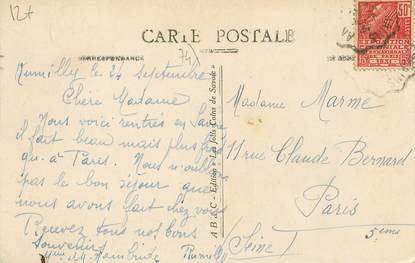 12+
CARTE POSTALE
CORRESPONDANCE
74
Rumilly le 24 Septembre
Chère Madame
Nous voici rentrés en Savoie
il fait beau mais plus frais
qu'à Paris. Nous n'oublions
pas le bon séjour que
nous avons fait chez vous
Recevez tous nos bons
Souvenirs
Rumilly
A B & C - Edition « Les Jolis Coins de Savoie »
50c
EXPOSITION
COLONIALE
INTERNATIONALE
PARIS
1931
Madame Marme
11 rue Claude Bernard
Paris
5ème
(Seine)